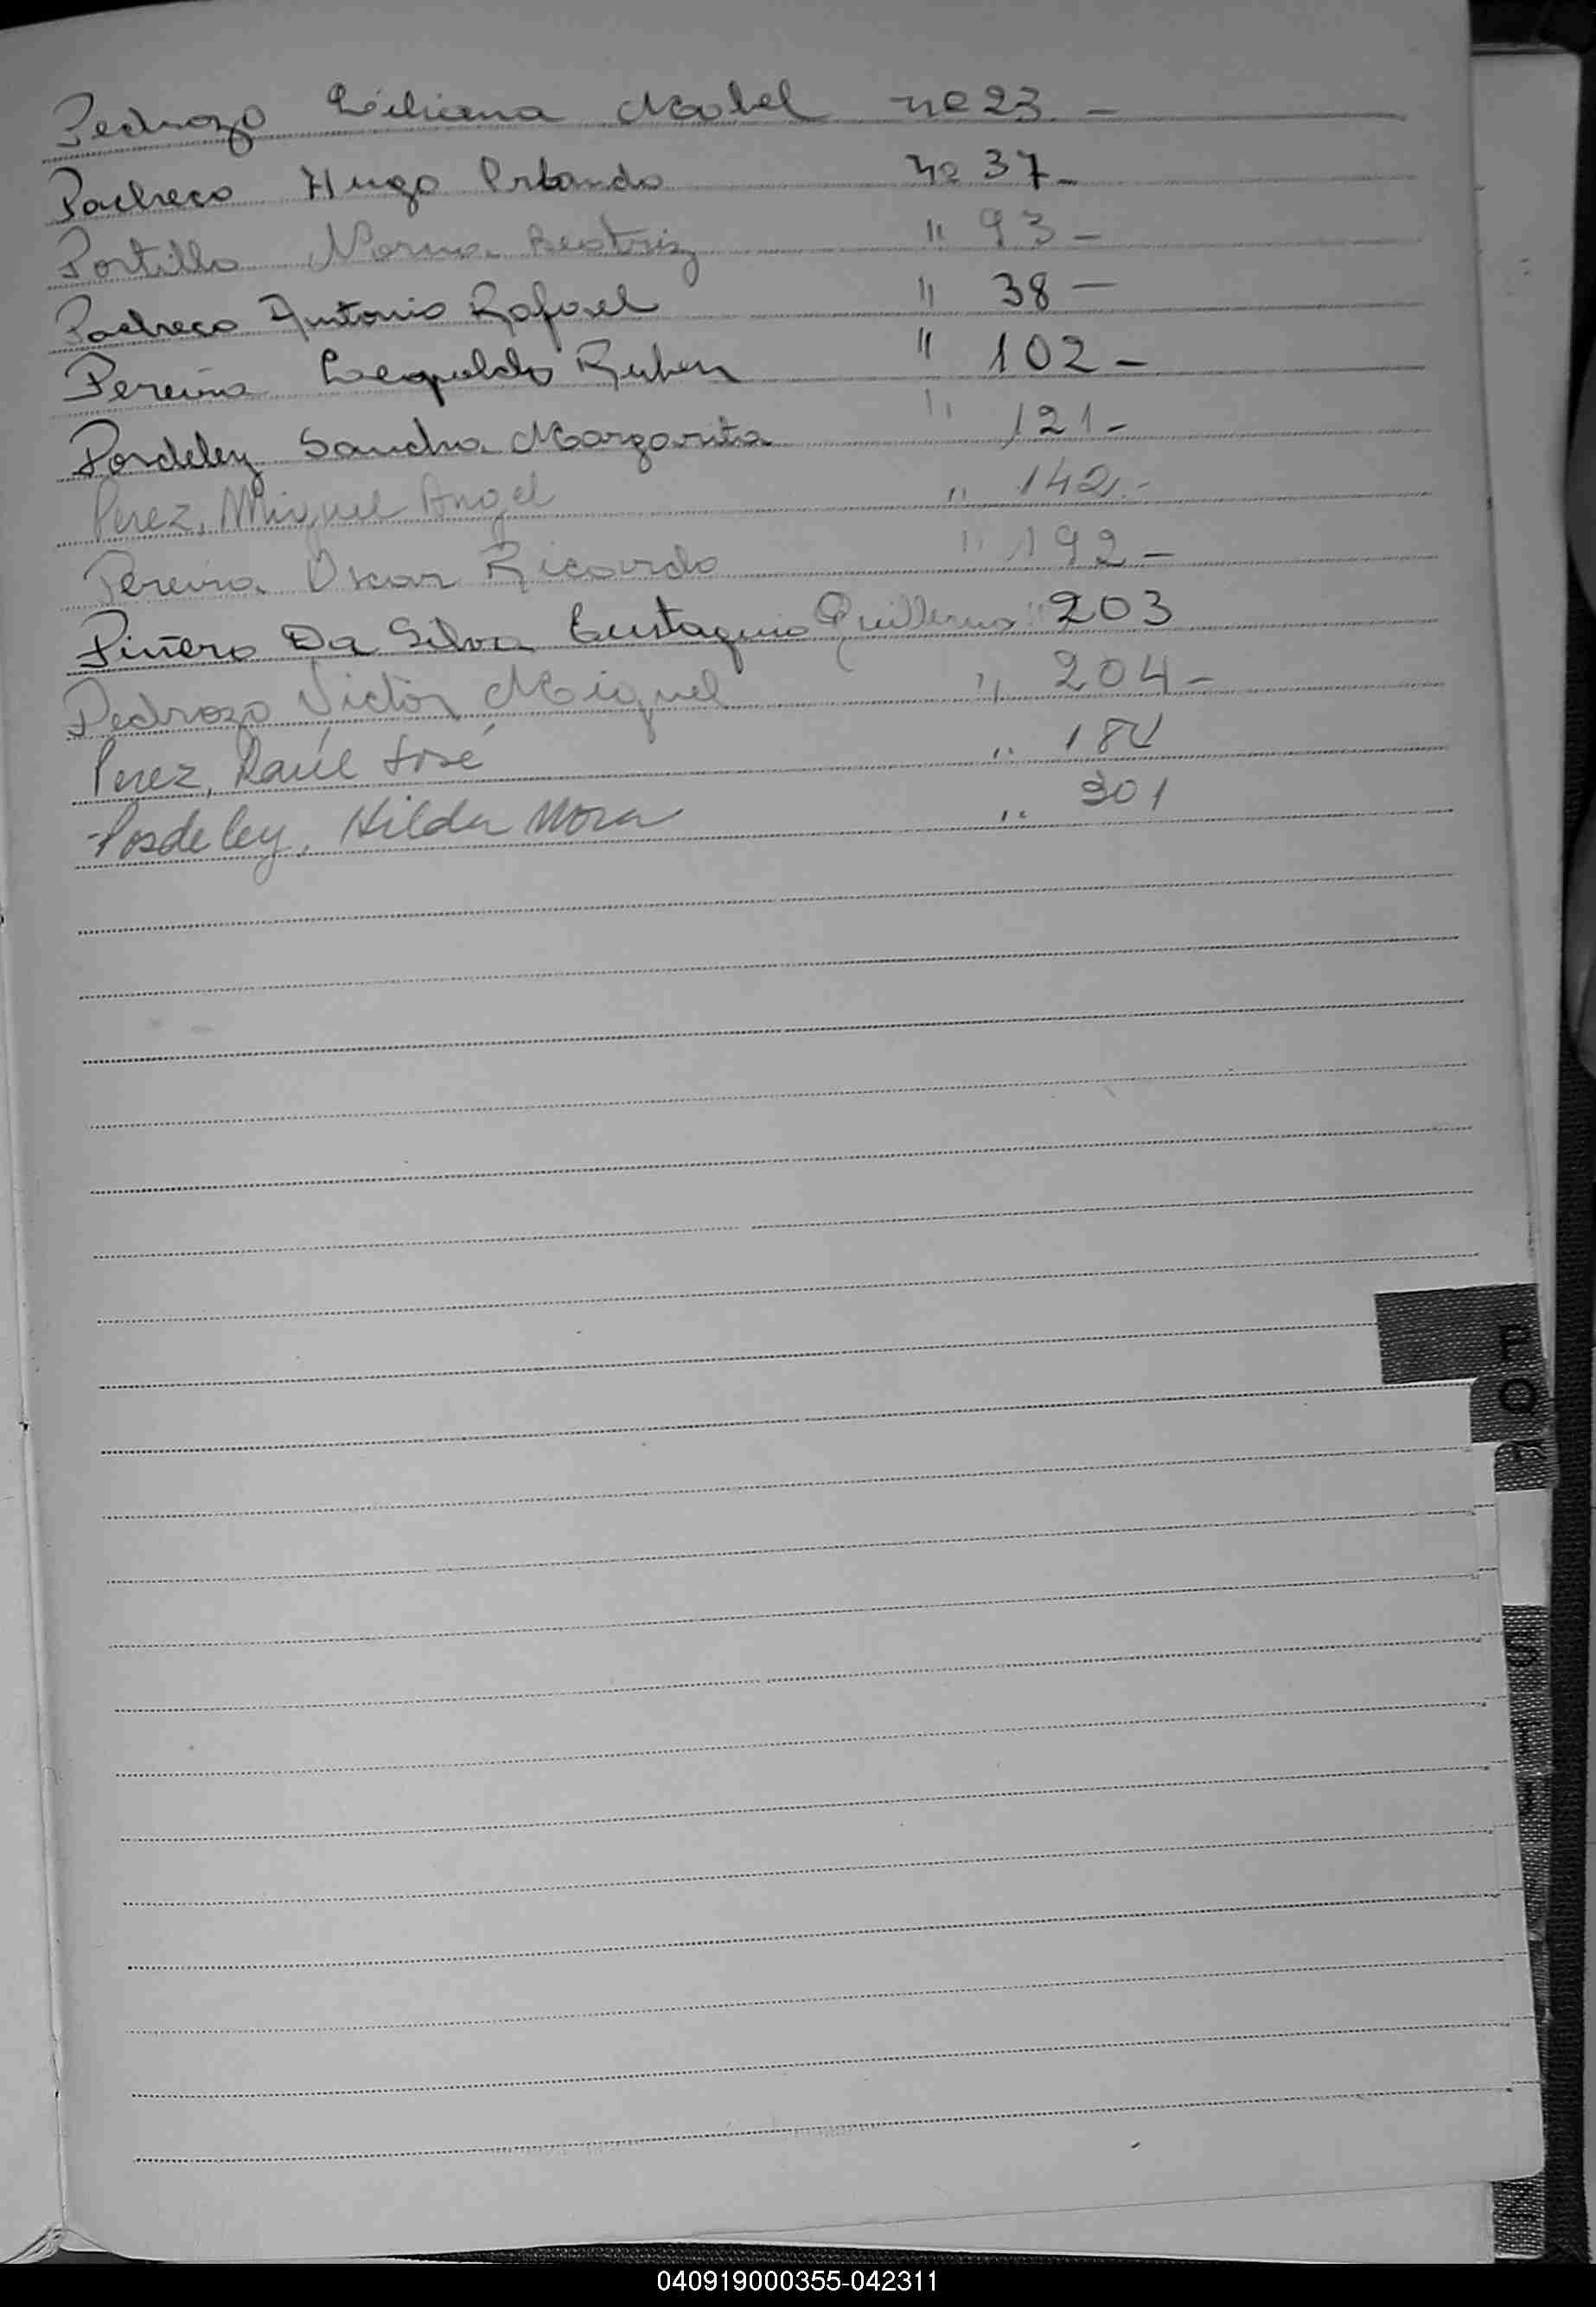 Pedrozo Liliana Mabel nº 23 -
Pacheco Hugo Orlando nº 37 -
Portillo Norma Beatriz " 93 -
Pacheco Antonio Rafael " 38 -
Pereira Leopoldo Ruben " 102 -
Posdeley Sandra Margarita " 121 -
Perez, Miguel Angel " 142 -
Pereira Oscar Ricardo " 192 -
Piñero Da Silva Eustaquio Guillermo " 203
Pedrozo Victor Miguel " 204 -
Perez, Raúl José " 184
Posdeley, Hilda Nora " 301
P
Q
R
S
T
U
040919000355-042311